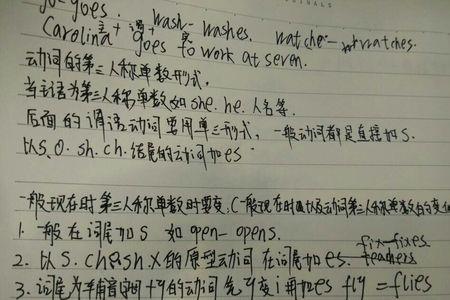 go-goes. wash-washes. watche-watches.
主 谓
Carolina goes to work at seven.
动词的第三人称单数形式.
当主语为第三人称单数如she. he. 人名等.
后面的谓语动词要用单三形式, 一般动词都是直接加s.
以s.o.sh.ch.结尾的动词加es
一般现在时第三人称单数时要变.(一般现在时 以及动词第三人称单数的变
1. 一般在词尾加s 如open- opens.
fix-fixes
2. 以s.ch sh.x的原型动词在词尾加es. teachers
3. 词尾为 +y的动词 先 变i再加es fly=flies